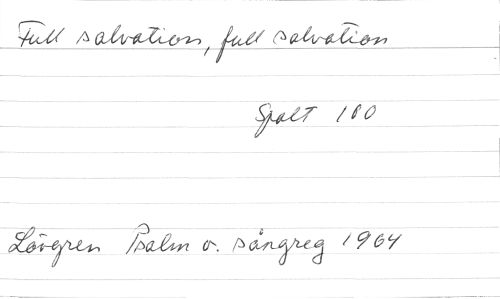 Full salvation, full salvation
Spalt 180
Lövgren Psalm o. sångreg 1964